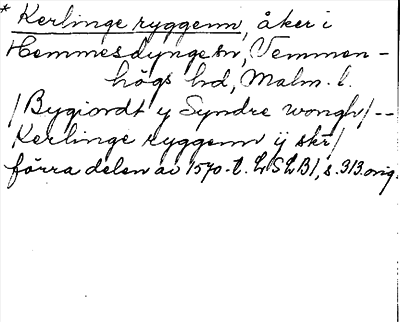 * Kerlinge ryggenn, åker i
Hemmesdynge sn, Vemmen-
högs hd, Malm. l.
/Bygiordt y Syndre wongh/--
Kerlinge ryggenn ÿ skr/
förra delen av 1570-t. LSLB1, s. 313. orig.